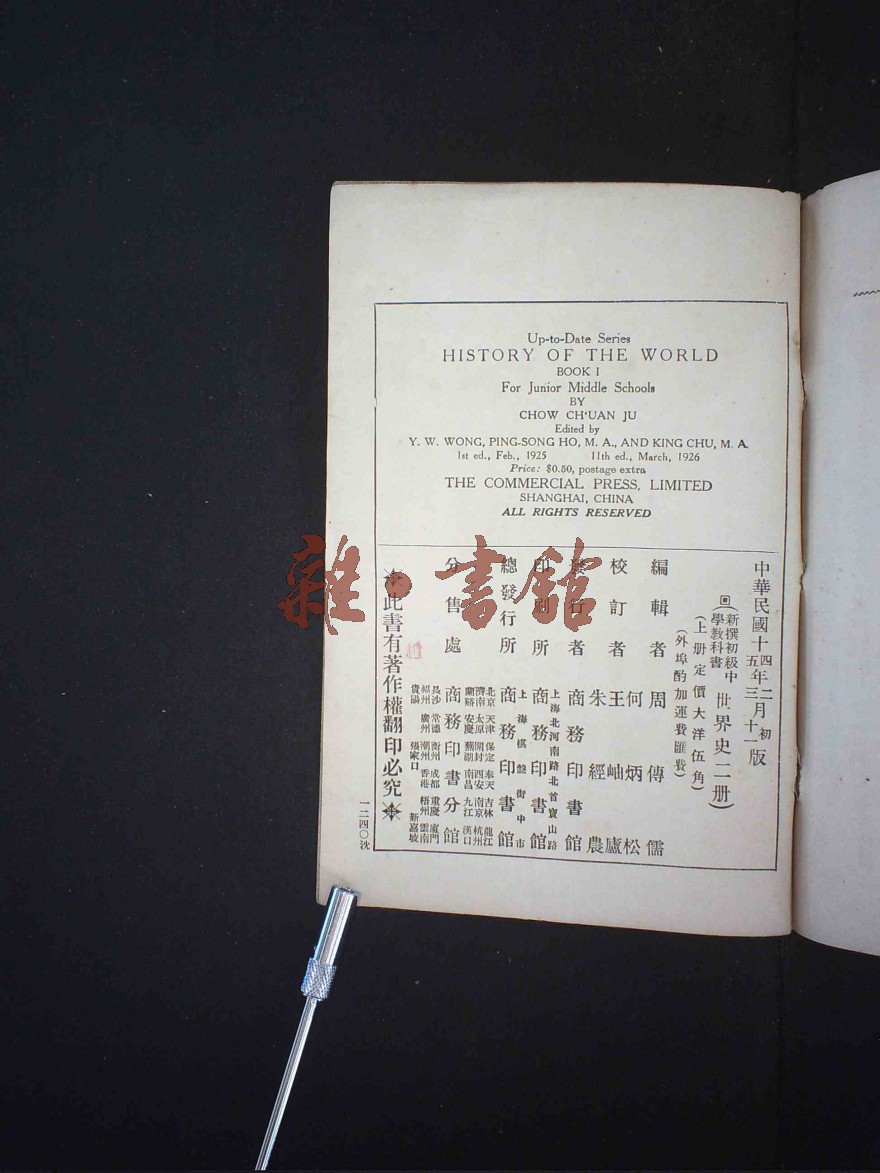 Up-to-Date Series
HISTORY OF THE WORLD
BOOK I
For Junior Middle Schools
BY
CHOW CH'UAN JU
Edited by
Y. W. WONG, PING-SONG HO, M. A., AND KING CHU, M. A.
1st ed., Feb., 1925 11th ed., March, 1926
Price: $0.50, postage extra
THE COMMERCIAL PRESS, LIMITED
SHANGHAI, CHINA
ALL RIGHTS RESERVED
中華民國十四年二月初版
五年三月十一版
(新撰初級中學教科書 世界史二册)
(上册定價大洋伍角)
(外埠酌加運費匯費)
編輯者 周傳儒
校訂者 何炳松
王岫廬
朱經農
發行者 商務印書館
印刷所 上海北河南路北首寶山路
商務印書館
總發行所 上海棋盤街中市
商務印書館
分售處
北京 天津 保定 奉天 吉林 龍江
濟南 太原 開封 西安 南京 杭州
蘭谿 安慶 蕪湖 南昌 九江 漢口
商務印書分館
長沙 常德 衡州 成都 重慶 廈門
福州 廣州 潮州 香港 梧州 雲南
貴陽 張家口 新嘉坡
此書有著作權翻印必究
一二四〇沈
雜·書館